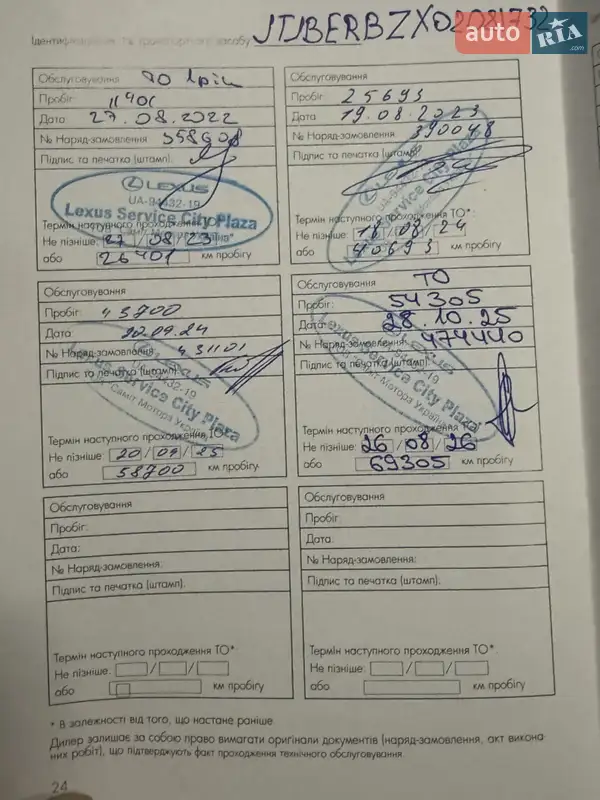 Ідентифікаційний № транспортного засобу JTJBERBZX02081732
auto RIA .com
Обслуговування ТО 1рік
Пробіг 11401
Дата 27.08.2022
№ Наряд-замовлення 358908
Підпис та печатка (штамп):
LEXUS
UA-94432-19
Lexus Service City Plaza
Термін наступного проходження ТО*
Не пізніше: 27/08/23
або 26401 км пробігу
Обслуговування
Пробіг: 25693
Дата 19.08.2023
№ Наряд-замовлення 390048
Підпис та печатка (штамп):
LEXUS
Термін наступного проходження ТО*:
Не пізніше: 18/08/24
або 40693 км пробігу
Обслуговування
Пробіг: 43700
Дата: 20.09.24
№ Наряд-замовлення 431101
Підпис та печатка (штамп):
LEXUS
Lexus Service City Plaza
Термін наступного проходження ТО*:
Не пізніше: 20/09/25
або 58700 км пробігу
Обслуговування ТО
Пробіг: 54305
Дата: 28.10.25
№ Наряд-замовлення: 474440
Підпис та печатка (штамп):
LEXUS
Lexus Service City Plaza
Термін наступного проходження ТО*
Не пізніше: 26/08/26
або 69305 км пробігу
Обслуговування
Пробіг:
Дата:
№ Наряд-замовлення:
Підпис та печатка (штамп):
Термін наступного проходження ТО*
Не пізніше: / /
або км пробігу
Обслуговування
Пробіг:
Дата:
№ Наряд-замовлення:
Підпис та печатка (штамп):
Термін наступного проходження ТО*:
Не пізніше: / /
або км пробігу
* В залежності від того, що настане раніше.
Дилер залишає за собою право вимагати оригінали документів (наряд-замовлення, акт викона-
них робіт), що підтверджують факт проходження технічного обслуговування.
24